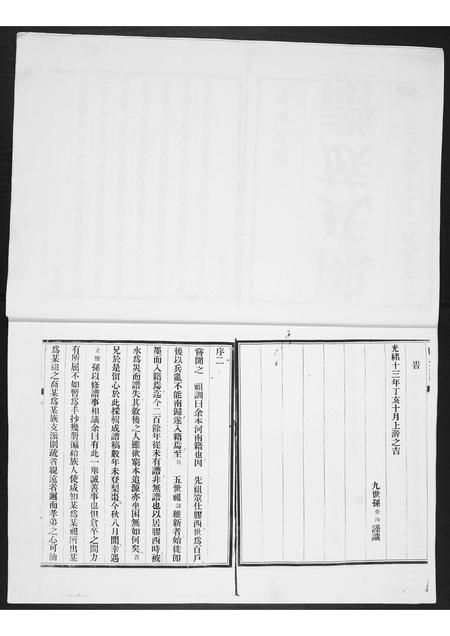 旹
光緒十三年丁亥十月上澣之吉
九世孫
謹識
序二
嘗聞之 祖訓曰余本河南籍也因 先祖筮仕膠西世爲百戶
後以兵亂不能南歸遂入籍焉至 我 五世祖 諱 維新者始徒卽
墨而入籍焉迄今二百餘年從未有譜非無譜也以居膠西時被
水爲災而譜失其敘後之人雖欲窮本追源亦坐困無如何矣 吾
兄於是留心於此採輯成譜稿數年未登梨棗今秋八月間幸遇
立 孫以修譜事相議余曰有此一舉誠善事也但倉卒之間力
有所屈不如暫爲手抄幾册徧給族人使咸知某爲某祖所出某
爲某祖之裔某爲某族支派則疏者親遠者邇而孝弟之心可油